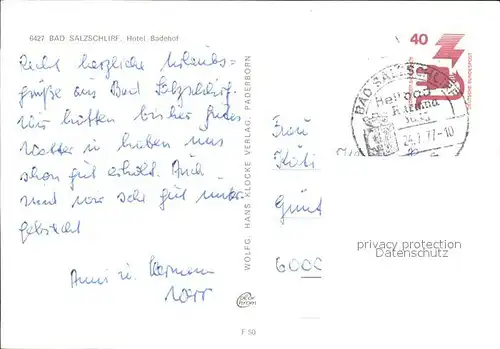 6427 BAD SALZSCHLIRF, Hotel Badehof
Recht herzliche Urlaubs=
grüße aus Bad Salzschlirf.
Wir hatten bisher gutes
Wetter u. haben uns
schon gut erholt. Auch
sind wir sehr gut unter
gebracht
Anni u. Hermann
WOLFG. HANS KLOCKE VERLAG, PADERBORN
F 50
40
DEUTSCHE BUNDESPOST
BAD SALZSCHLIRF
Heilbad
Rheuma
77-10
Frau
Käti
Günt
6000
privacy protection
Datenschutz